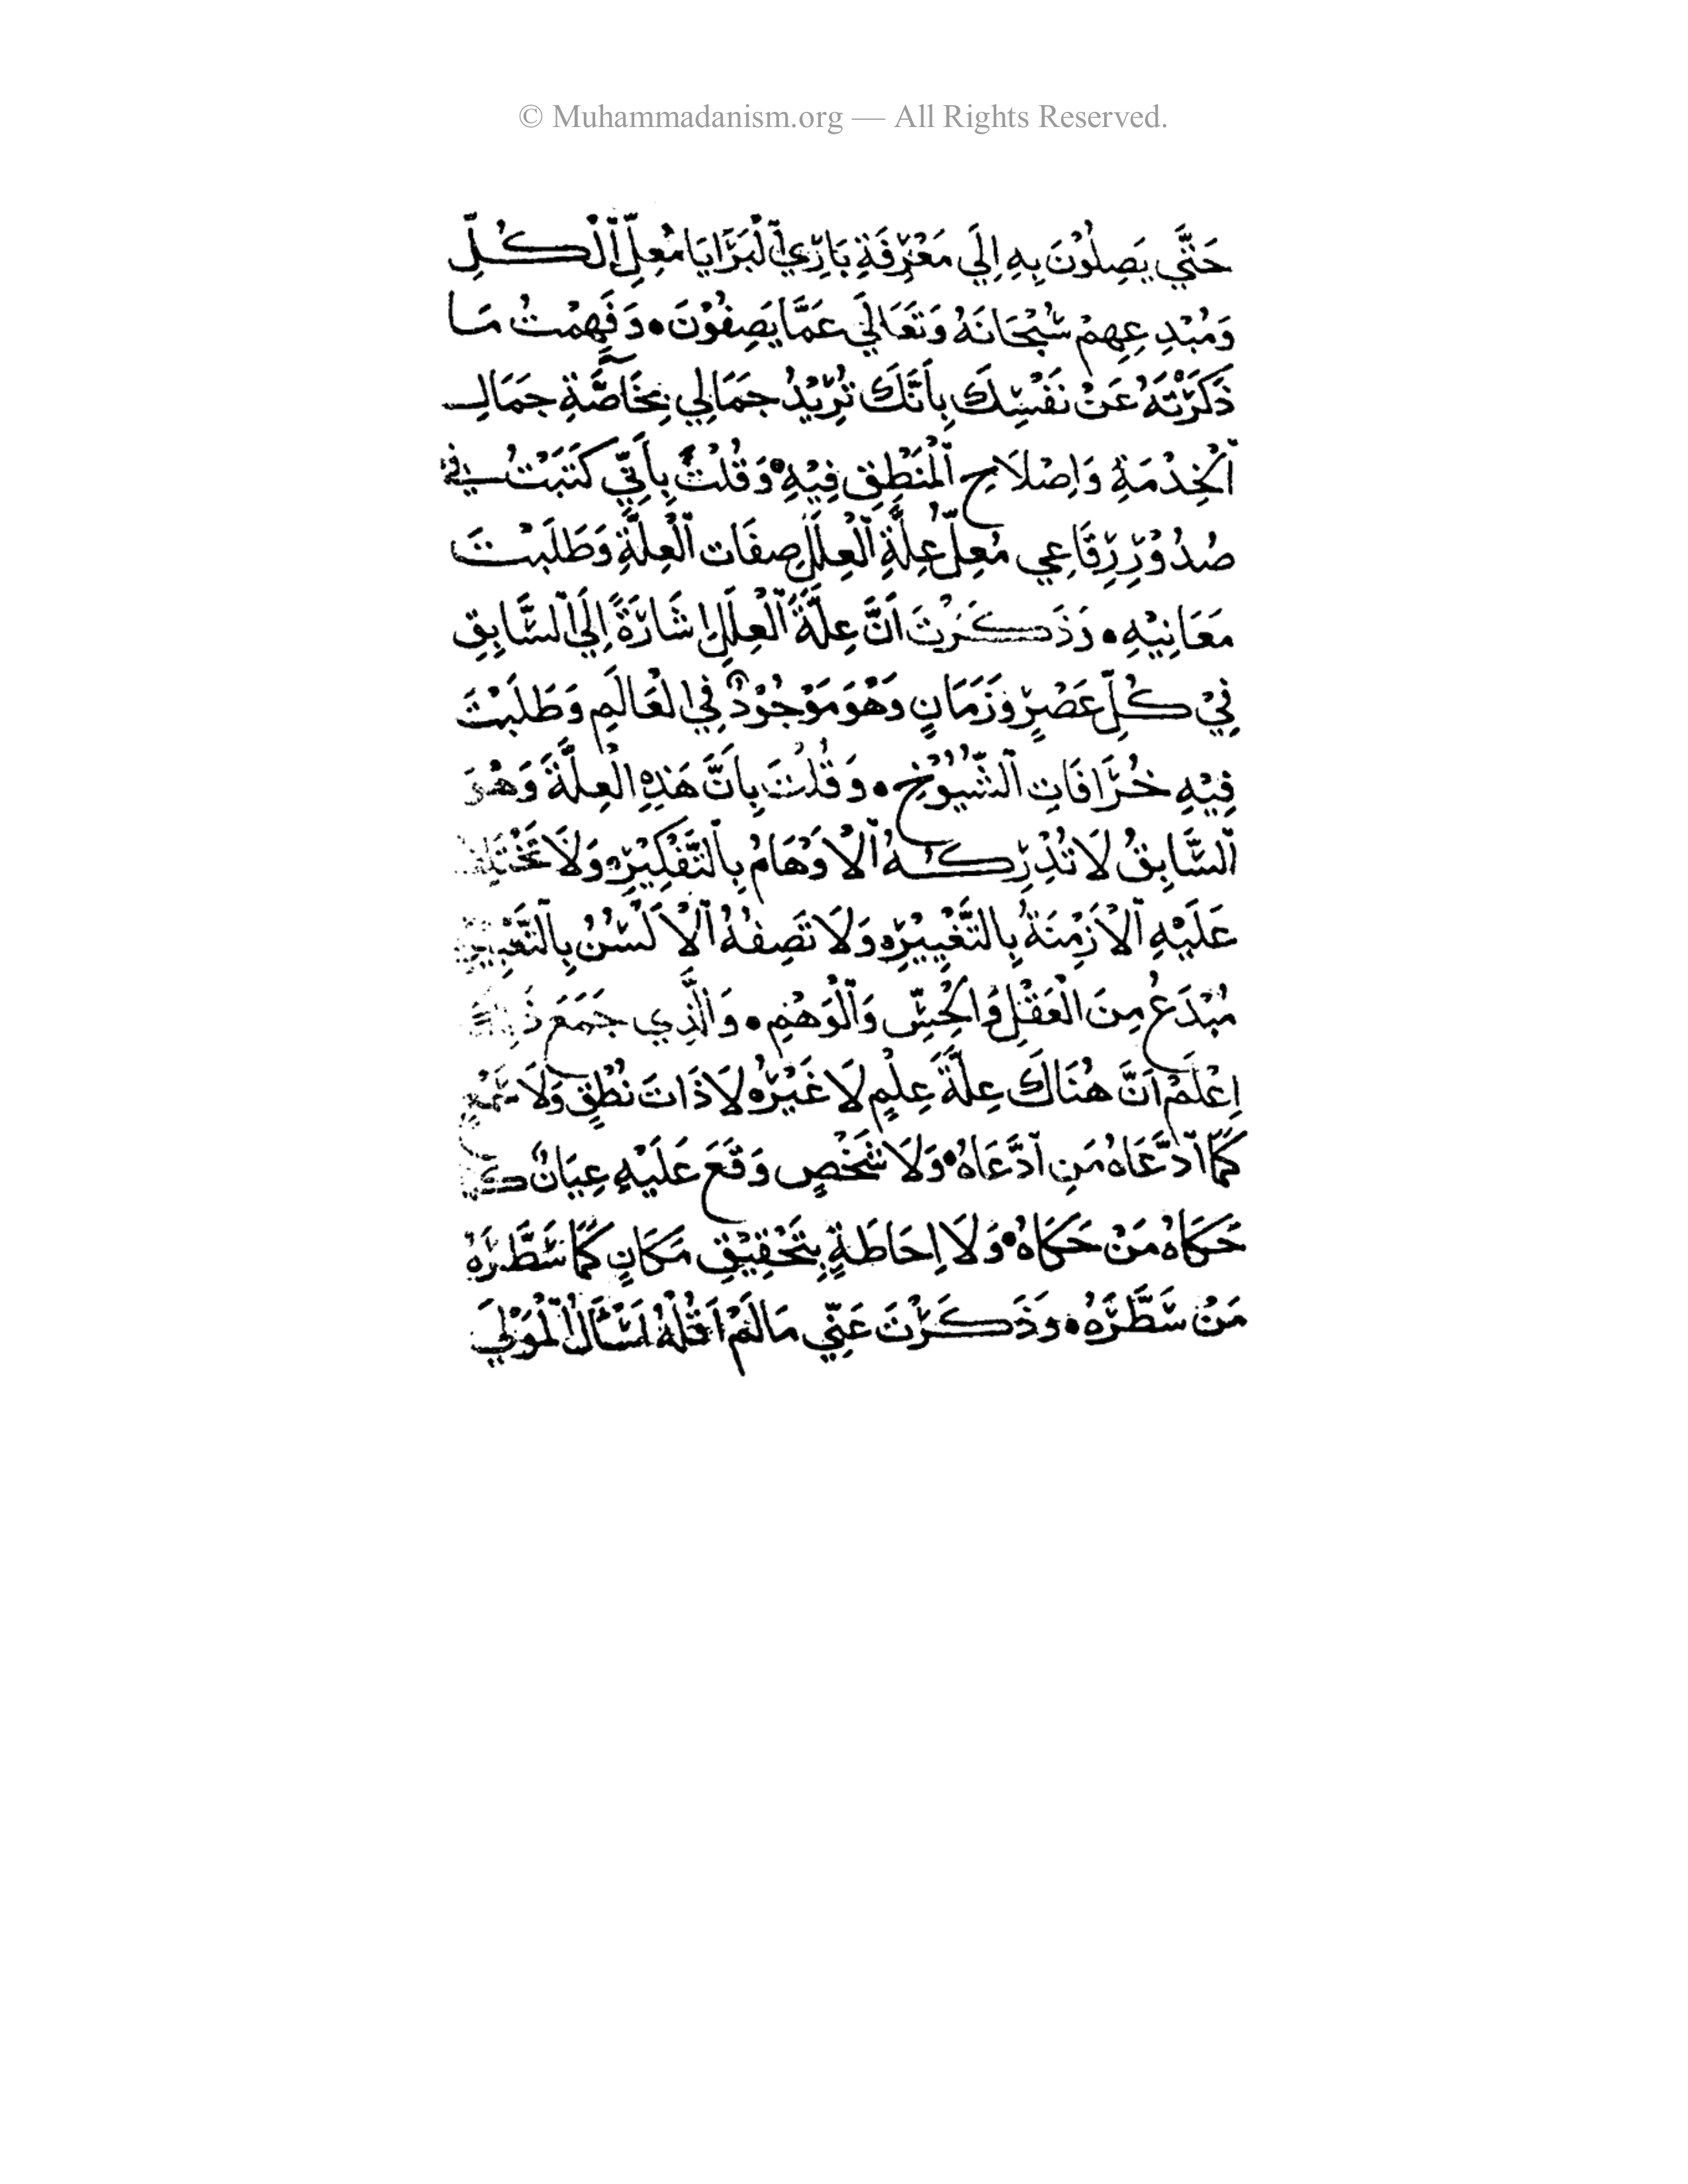 © Muhammadanism.org — All Rights Reserved.
حَتَّي يَصِلُوْنَ بِهِ اِلَي مَعْرِفَةِ بَارِيِ ٱلْبَرَايَا مُعِلِّ ٱلْكُلِّ
وَمُبْدِعِهِمْ سُبْحَانَهُ وَتَعَالَي عَمَّا يَصِفُوْنَ • وَفَهِمْتُ مَا
ذَكَرْتَهُ عَنْ نَفْسِكَ بِاَنَّكَ تُرِيْدُ جَمَالِي بِخَاصَّةِ جَمَالِ
ٱلْخِدْمَةِ وَاِصْلَاحِ ٱلْمَنْطِقِ فِيْهِ • وَقُلْتَ بِاَنِّي كَتَبْتُ فِي
صُدُوْرِ رِقَاعِي مُعِلِّ عِلَّةِ ٱلْعِلَلِ صِفَات ٱلْعِلَّةِ وَطَلَبْتَ
مَعَانِيْهِ • وَذَكَرْتَ اَنَّ عِلَّةَ ٱلْعِلَلِ اِشَارَةً اِلَيٰ ٱلسَّابِقِ
فِيْ كُلِّ عَصْرٍ وَزَمَانٍ وَهْوَ مَوْجُوْدٌ فِي الْعَالَمِ وَطَلَبْتَ
فِيْهِ خُرَافَاتِ ٱلشُّيُوْخِ • وَقُلْتَ بِاَنَّ هَذِهِ الْعِلَّةَ وَهْوَ
ٱلسَّابِقُ لَا تُدْرِكُهُ ٱلْاَوْهَامُ بِٱلتَّفْكِيْرِ • وَلَا
عَلَيْهِ ٱلْاَزْمِنَةُ بِالتَّغْيِيْرِ • وَلَا تَصِفُهُ ٱلْاَلْسُنُ بِالتَّعْبِيْرِ
مُبْدَعُ مِنَ الْعَقْلِ وَالْحِسِّ وَٱلْوَهْمِ • وَالَّذِي جَمَعَ
اِعْلَمْ اَنَّ هُنَاكَ عِلَّةَ عِلْمٍ لَا غَيْرُهُ لَا ذَاتَ نُطْقٍ وَلَا
كَمَا ٱدَّعَاهُ مَنِ ٱدَّعَاهُ • وَلَا شَخْصٍ وَقَعَ عَلَيْهِ عِيَانٌ
حَكَاهُ مَنْ حَكَاهُ • وَلَا اِحَاطَةٍ بِتَحْقِيْقِ مَكَانٍ كَمَا سَطَّرَهُ
مَنْ سَطَّرَهُ • وَذَكَرْتَ عَنِّي مَا لَمْ اَقُلْهُ لَسْتَاَلُ ٱلْمَوْلَي